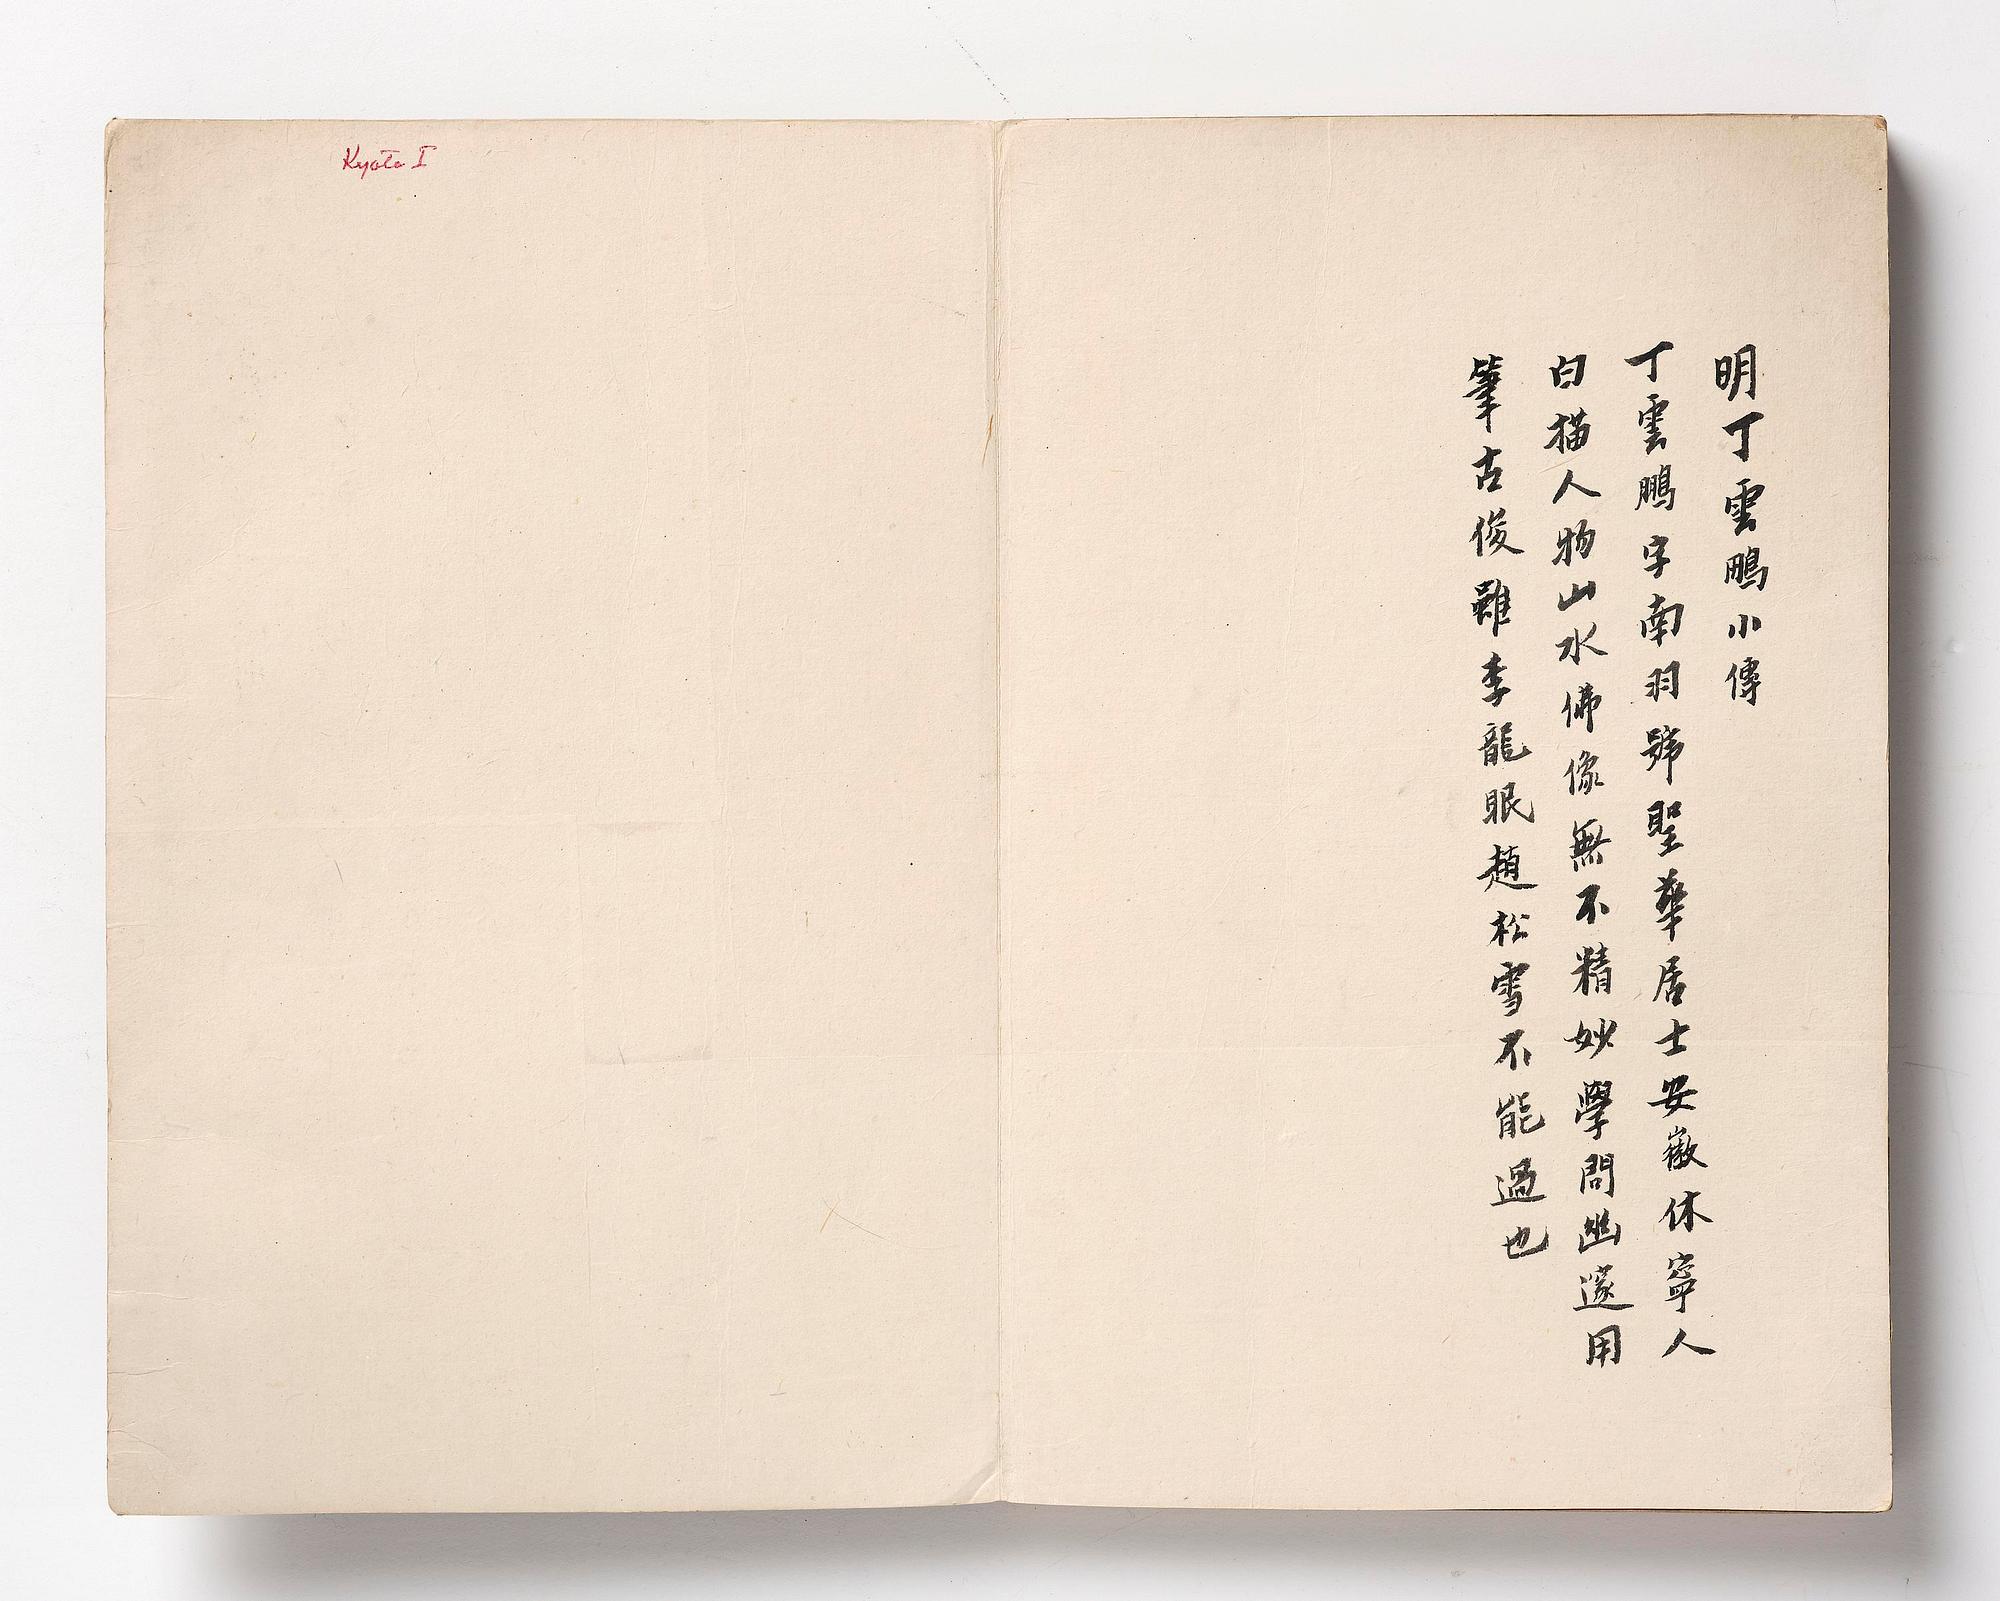 明丁雲鵬小傳
丁雲鵬字南羽號聖華居士安徽休寧人
白描人物山水佛像無不精妙學問幽邃用
筆古俊雖李龍眠趙松雪不能過也
Kyoto I